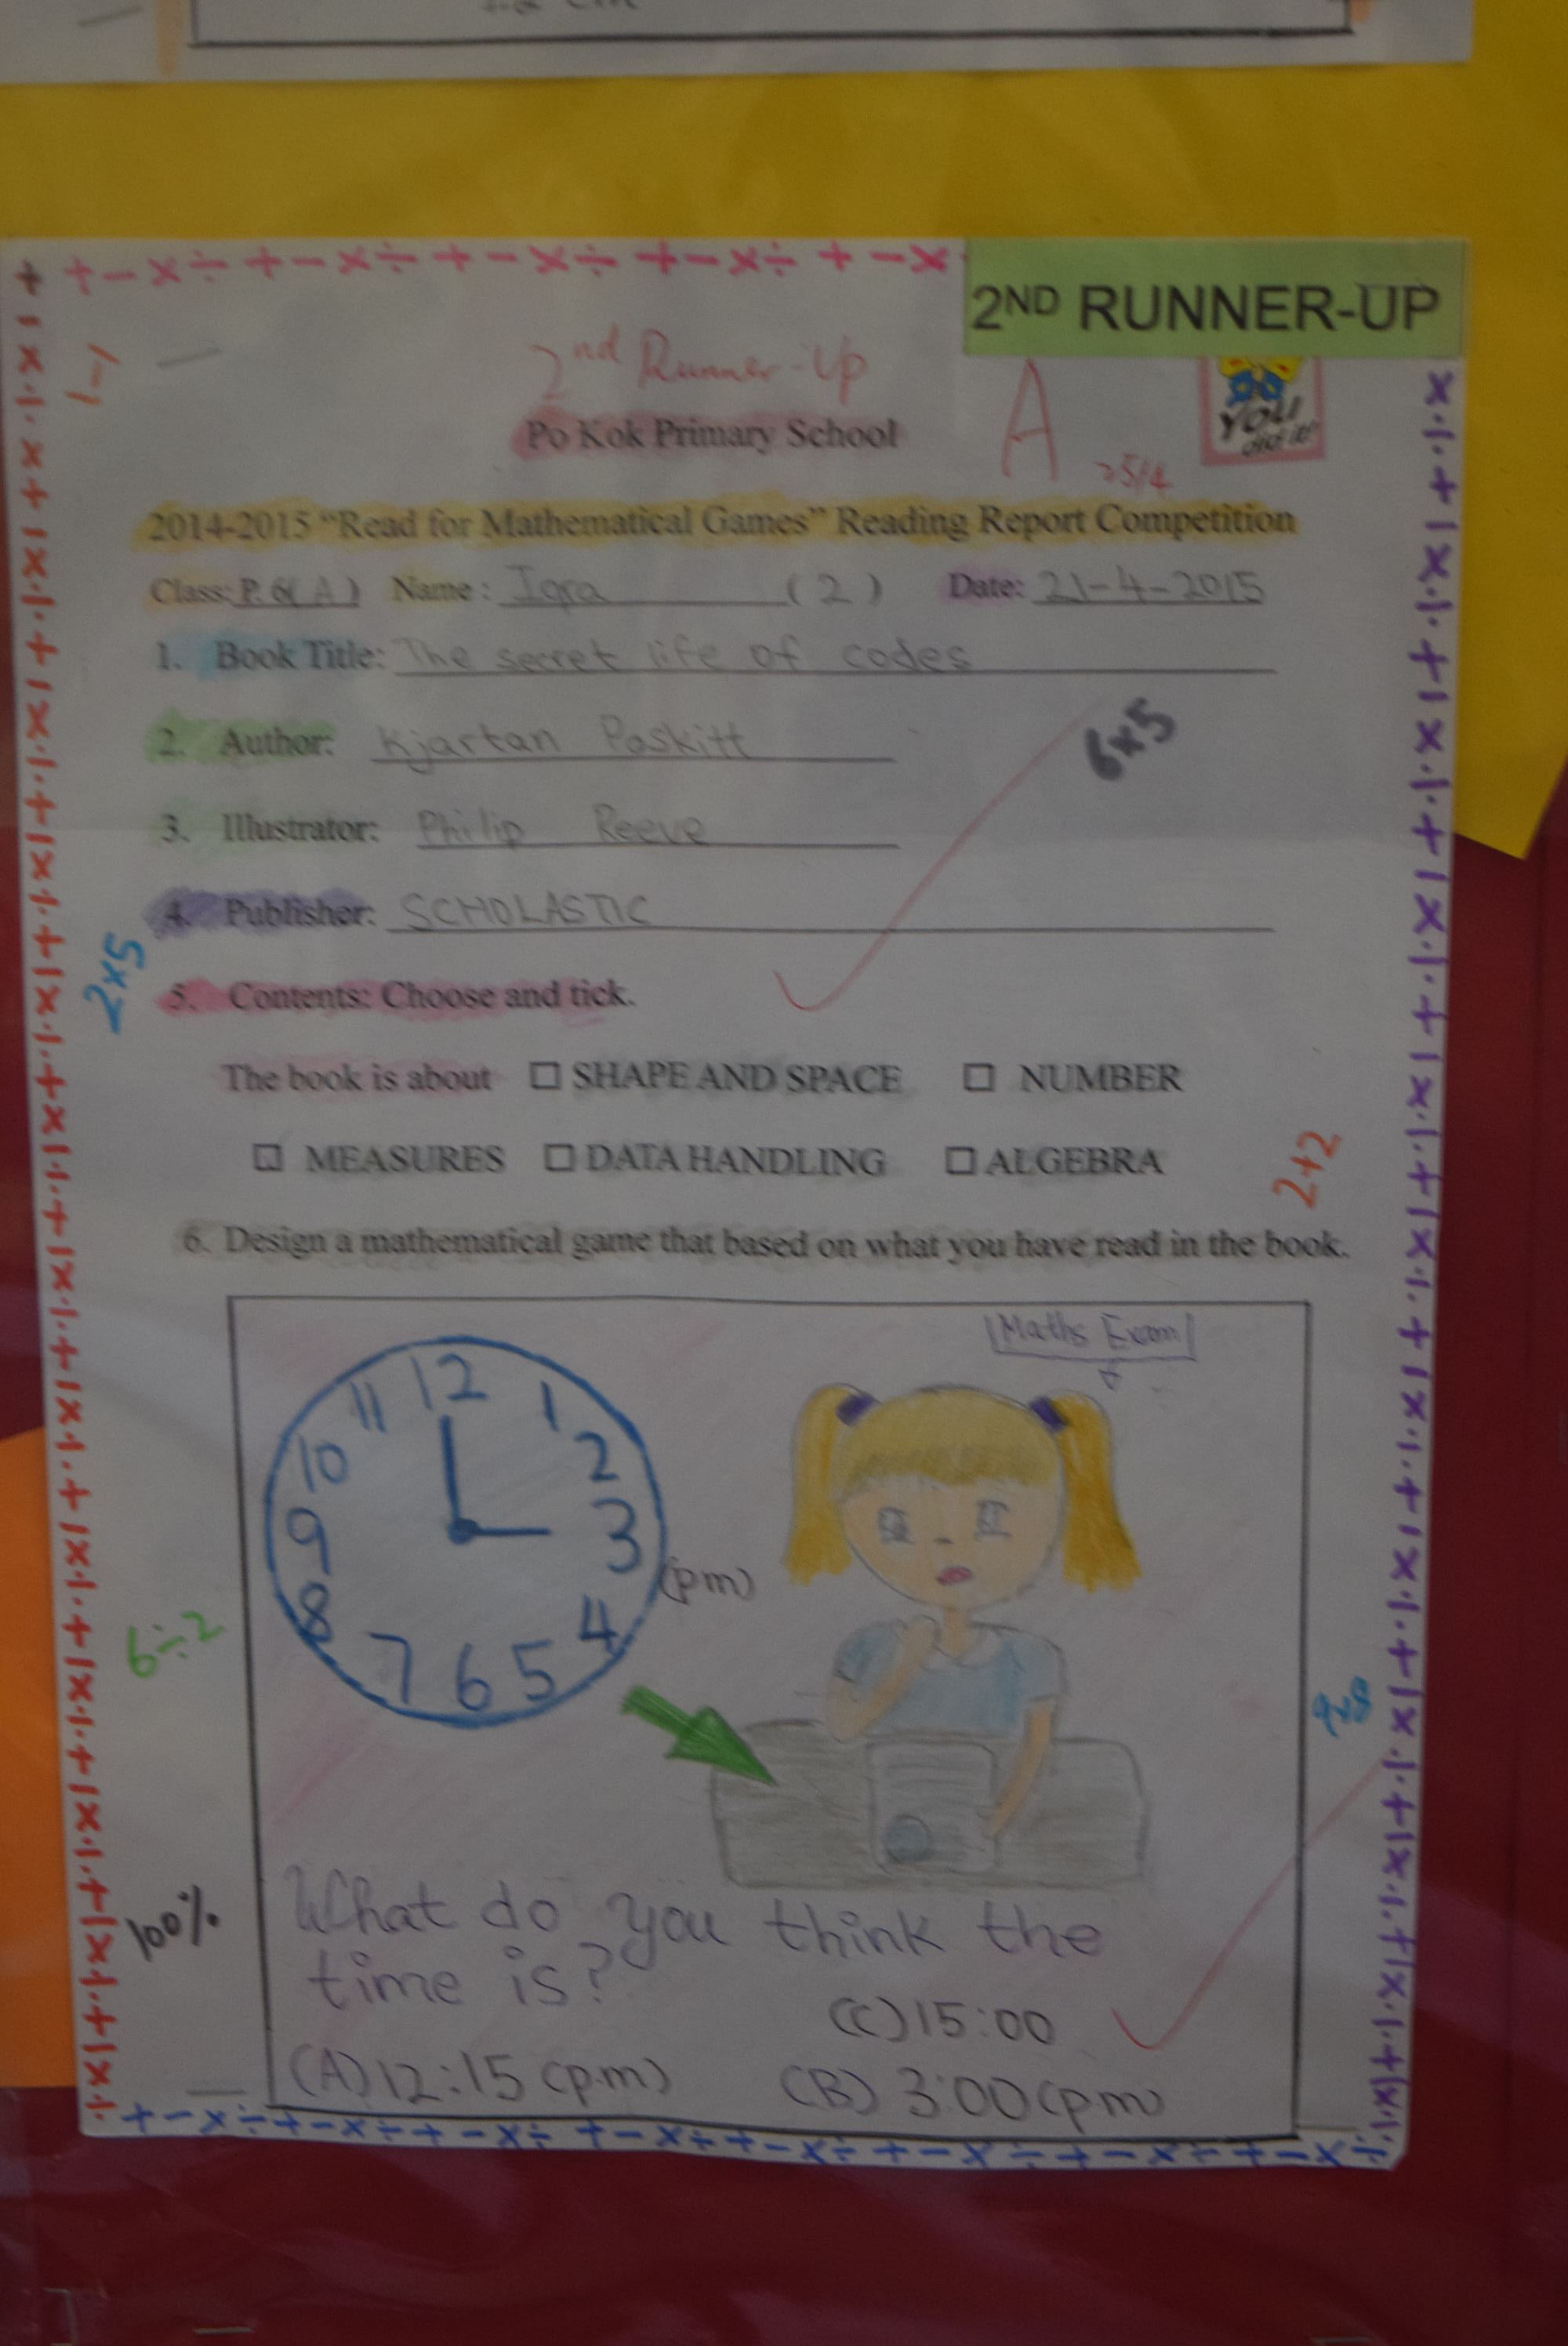 + - × ÷ + - × ÷ + - × ÷ + - × ÷ + - ×
2ND RUNNER-UP
1-1
2nd Runner-Up
A
You did it!
Po Kok Primary School
2014-2015 “Read for Mathematical Games” Reading Report Competition
Class: P. 6( A ) Name : Iqra ( 2 ) Date: 21-4-2015
1. Book Title: The secret life of codes
2. Author: Kjartan Poskitt
6×5
3. Illustrator: Philip Reeve
4. Publisher: SCHOLASTIC
2×5
5. Contents: Choose and tick.
The book is about ☐ SHAPE AND SPACE ☐ NUMBER
☐ MEASURES ☐ DATA HANDLING ☐ ALGEBRA
2+2
6. Design a mathematical game that based on what you have read in the book.
Maths Exam
12 1 2 3 4 5 6 7 8 9 10 11
(pm)
6÷2
100%
What do you think the
time is?
(C) 15:00
(A) 12:15 (p.m) (B) 3:00 (pm)